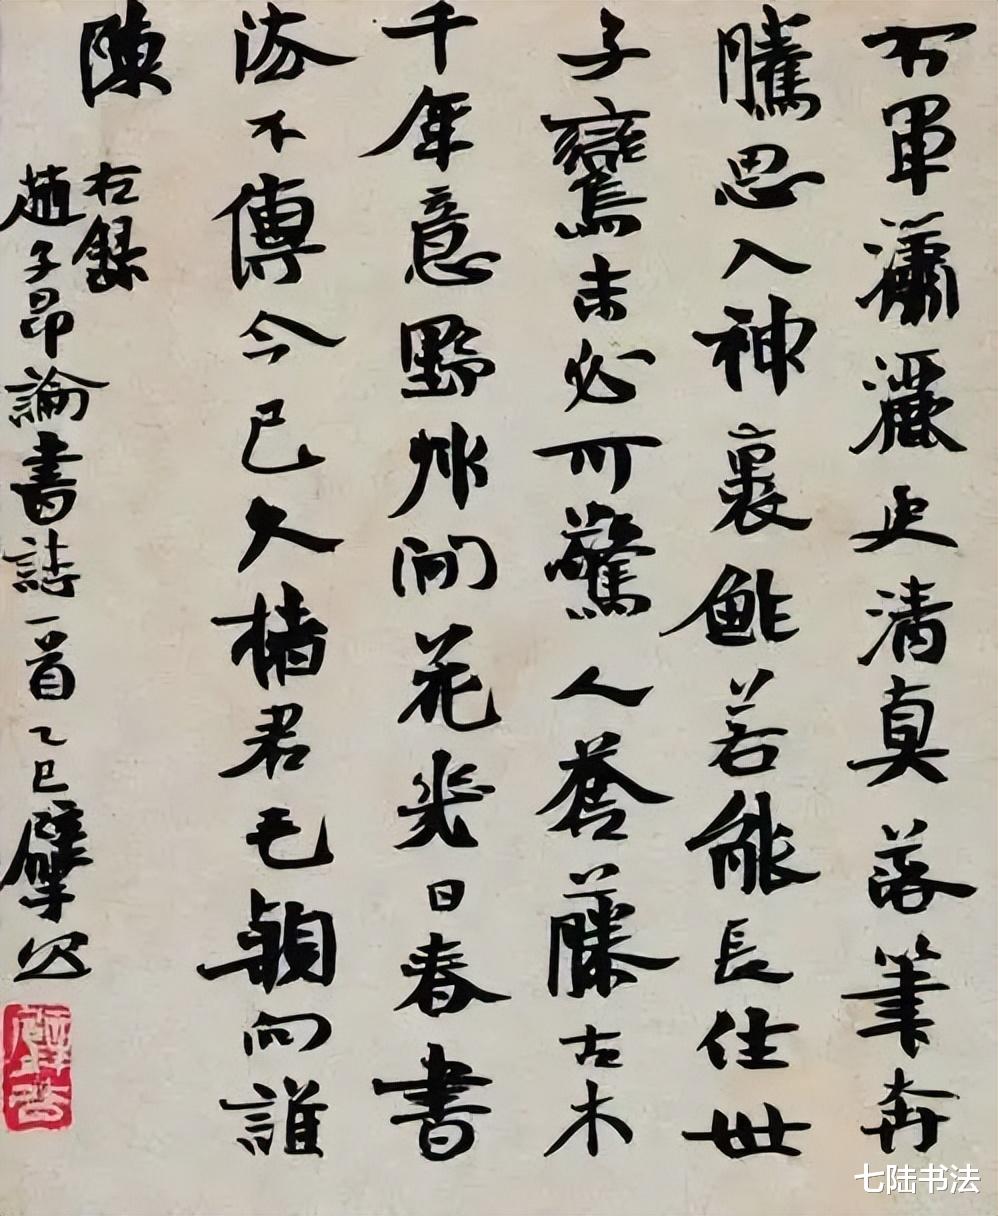 右軍瀟灑更清真落筆奔
騰思入神裏鮓若能長住世
子鸞未必可驚人蒼藤古木
千年意野艸間花幾日春書
法不傳今已久楮君毛穎向誰
陳
右錄
趙子昂論書詩一首乙巳
七陆书法